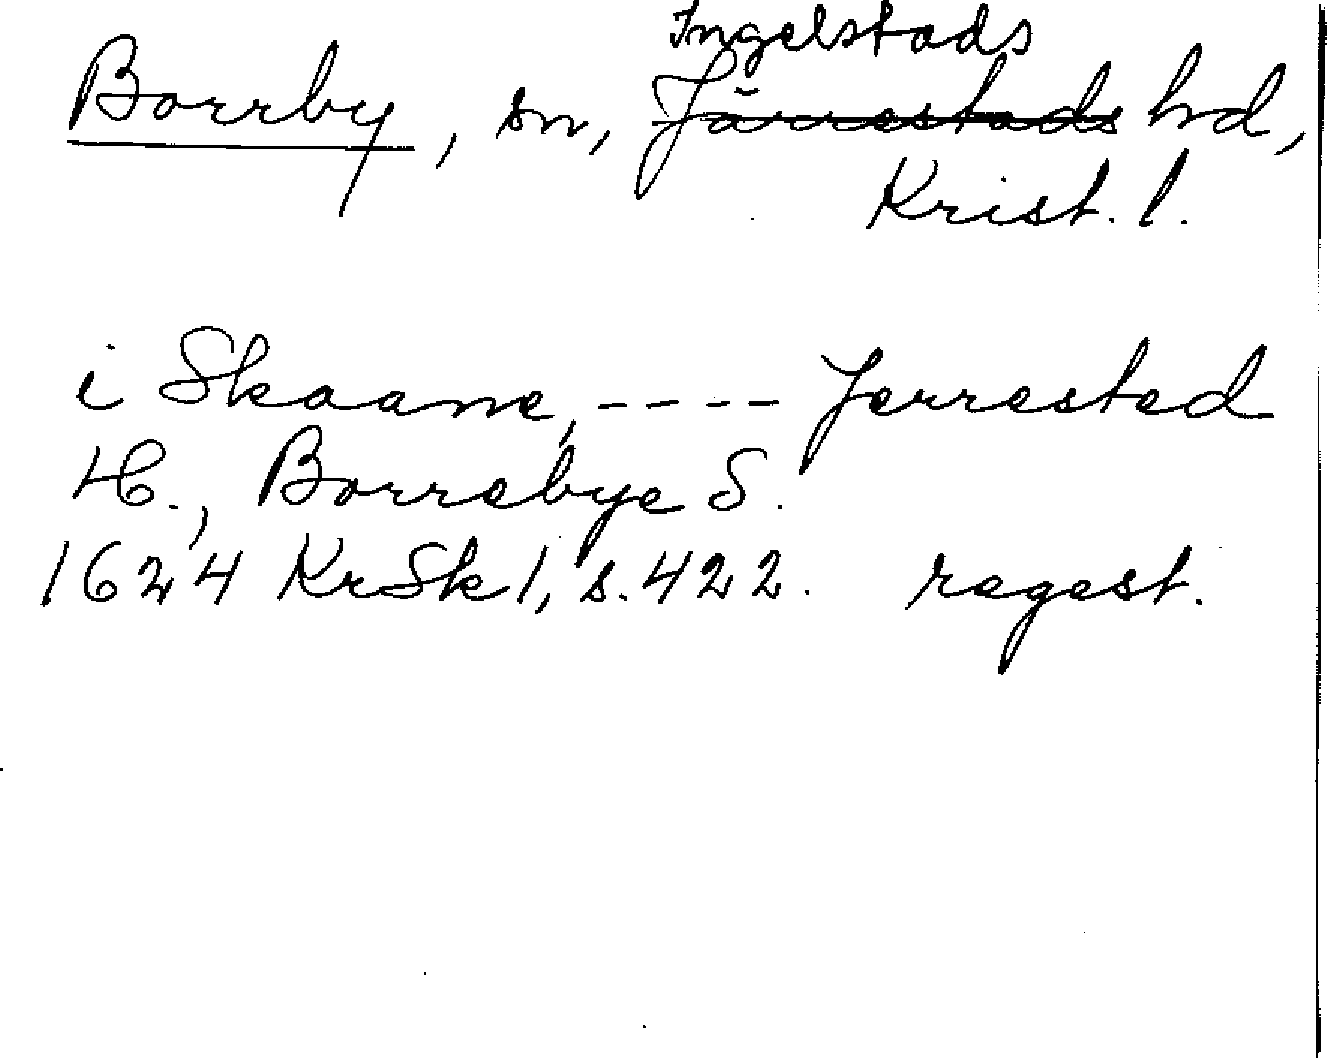 Ingelstads
Borrby, sn, Järrestads hd,
Krist. l.
i Skaane, ---- Jerrested
H., Borrebye S.
1624 KrSk 1, s. 422. regest.